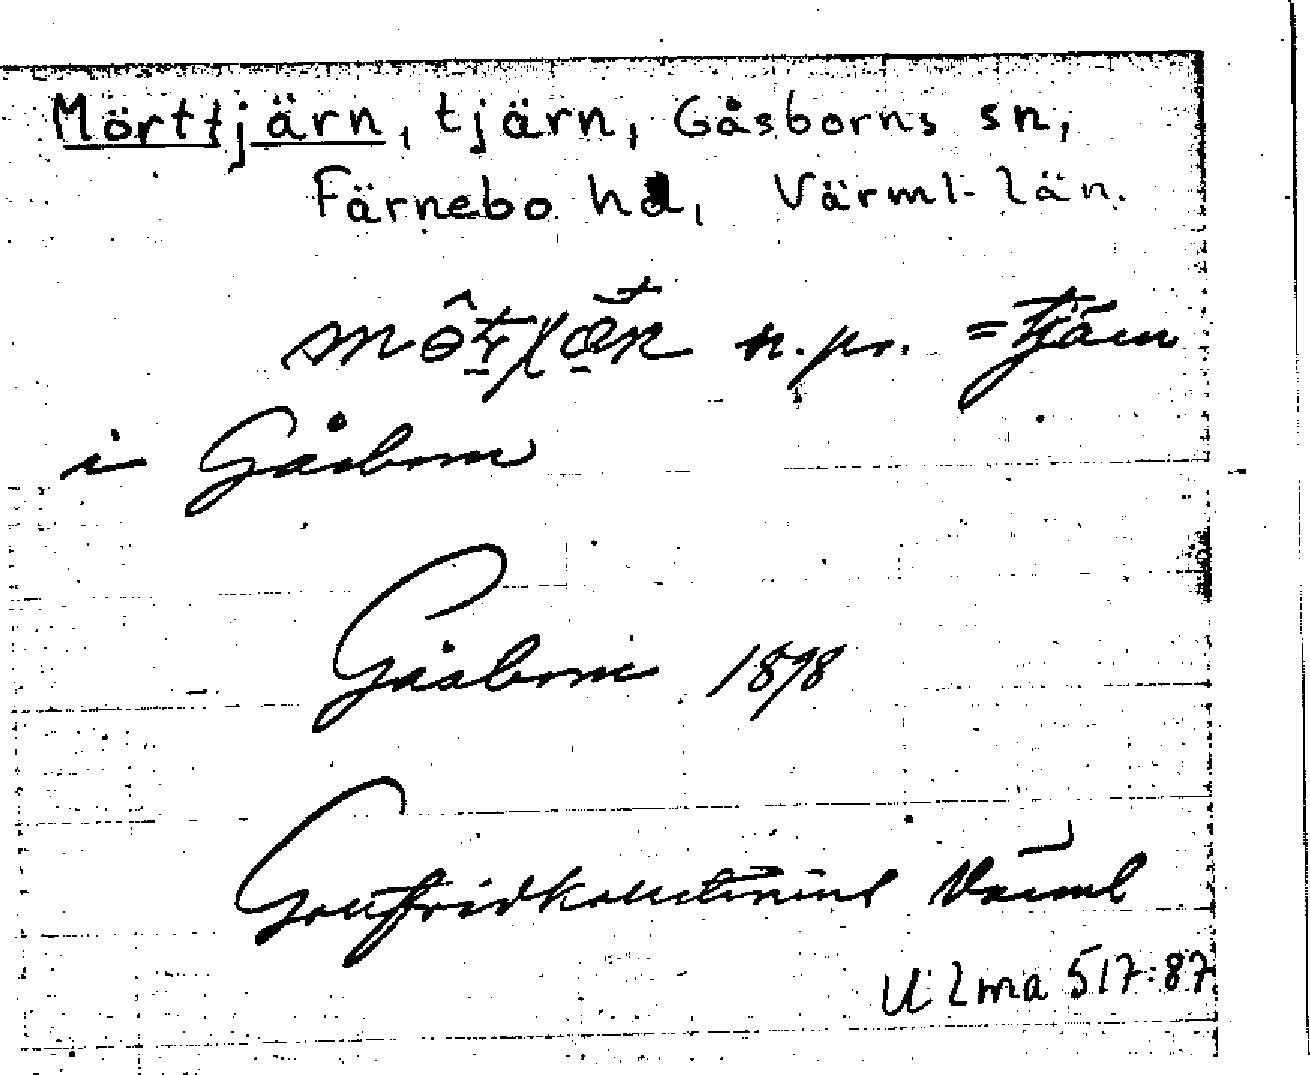 Mörttjärn, tjärn, Gåsborns sn,
Färnebo hd, Värml. län.
n. pr. = tjärn
i Gåsborn
Gåsborn 1898
Gottfrid Kallstenius Värml
ULma 517:87